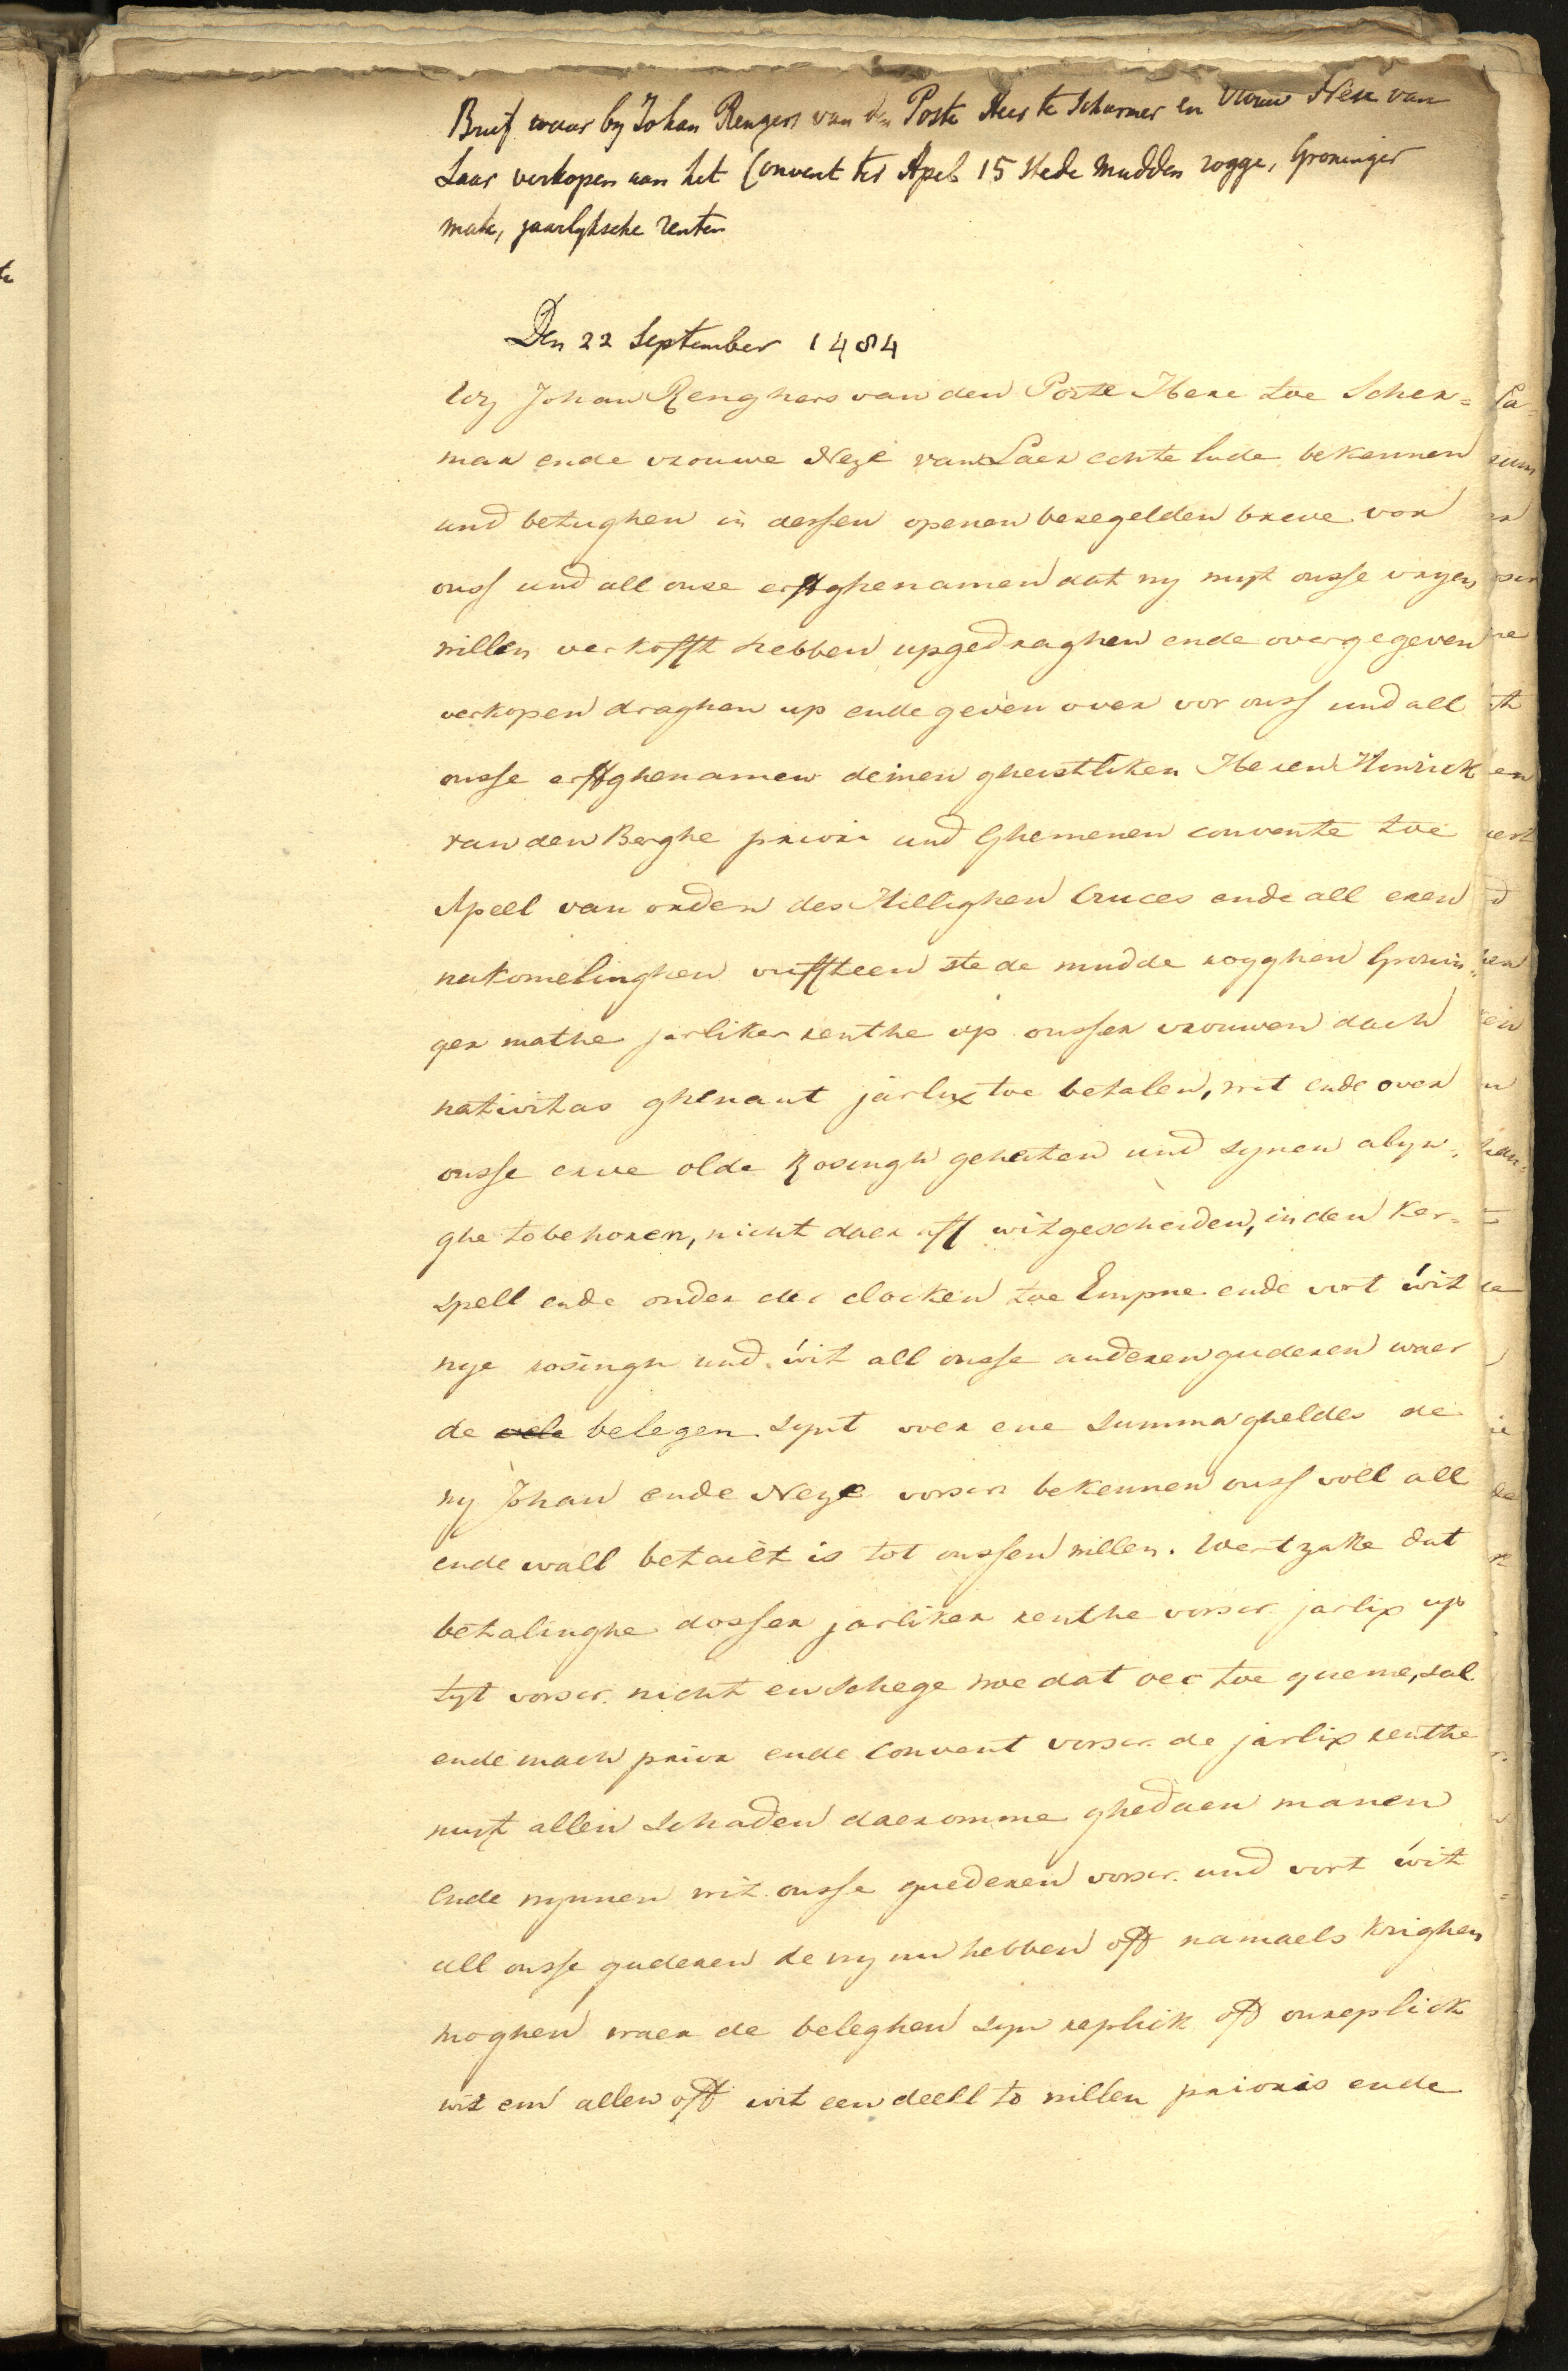 Brief waar by Johan Rengers van den Poste Heer te Scharmer en Vrouw Nese van
Laar verkopen aan het Convent ter Apel 15 stede mudden rogge, Groninger
mate, jaarlyksche renten
Den 22 September 1484
Wy Johan Renghers van den Poste Here toe Scher=
mer ende vrouwe Neze van Laer echte lude bekennen
und betughen in dessen openen besegelden breve vor
onss und all onse erffghenamen dat wy myt onsse vryen
willen verkofft hebben upgedraghen ende overgegeven
verkopen draghen up ende geven over vor onss und all
onsse erffghenamen deinen gheistliken Heren Hinrick
van den Berghe prior und Ghemenen convente toe
Apell van orden des Hillighen Cruces ende all eren
nakomelinghen viffteen stede mudde rogghen Gronin=
ger mathe jarliker renthe op onsser vrouwen dach
nativitas ghenant jarlix toe betalen, wit ende over
onsse erve olde Rosingh geheiten und synen abyn=
ghe tobehoren, nicht daer aff witgescheiden, in den Ker=
spell ende onder der clocken toe Empne ende vort wit
nye rosingh und wit all onsse anderen guderen waer
de vele belegen synt voer ene summa gheldes de
wy Johan ende Neze vorscr. bekennen onss voll all
ende wall betailt is tot onssen willen. Wert zake dat
betalinghe dosser jarliker renthe vorscr. jarlix up
tyt vorscr. nicht en schege woe dat oec toe queme, sal
ende mach prior ende Convent vorscr. de jarlix renthe
myt allen schaden daeromme ghedaen manen
Ende wynnen wit onsse guederen vorscr. und vort wit
all onsse guderen de wy nu hebben off namaels krighen
moghen waer de beleghen syn replick off onreplick
wit em allen off wit een deell to willen prioris ende